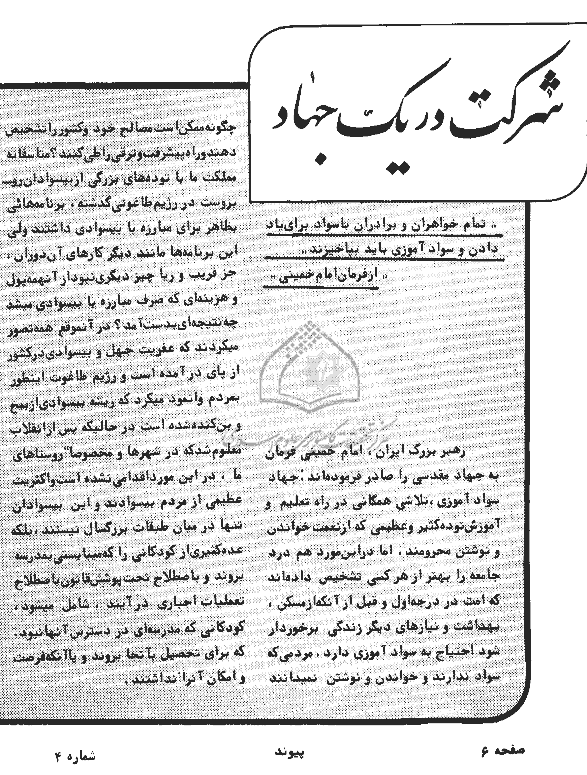 شرکت در یک جهاد
« تمام خواهران و برادران باسواد برای یاد
دادن و سوادآموزی باید بپاخیزند »
« از فرمان امام خمینی »
رهبر بزرگ ایران ، امام خمینی فرمان
به جهاد مقدسی را صادر فرموده‌اند : جهاد
سوادآموزی ، تلاشی همگانی در راه تعلیم و
آموزش توده کثیر و عظیمی که از نعمت خواندن
و نوشتن محرومند ، اما در این مورد هم درد
جامعه را بهتر از هر کسی تشخیص داده‌اند
که امت در درجه اول و قبل از آنکه از مسکن ،
بهداشت و نیازهای دیگر زندگی برخوردار
شود احتیاج به سوادآموزی دارد . مردمی که
سواد ندارند و خواندن و نوشتن نمیدانند
چگونه ممکن است مصالح خود و کشور را تشخیص
دهند و راه پیشرفت و ترقی را طی کنند ؟ متاسفانه
مملکت ما با توده‌های بزرگی از بیسوادان روبـ
بروست در رژیم طاغوتی گذشته ، برنامه‌هائی
بظاهر برای مبارزه با بیسوادی داشتند ولی
این برنامه‌ها مانند دیگر کارهای آن دوران ،
جز فریب و ریا چیز دیگری نبود از آنهمه پول
و هزینه‌ای که صرف مبارزه با بیسوادی میشد
چه نتیجه‌ای بدست آمد ؟ در آنموقع همه تصور
میکردند که عفریت جهل و بیسوادی در کشور
از پای در آمده است و رژیم طاغوت اینطور
بمردم وانمود میکرد که ریشه بیسوادی از بیخ
و بن کنده شده است در حالیکه پس از انقلاب
معلوم شد که در شهرها و مخصوصا" روستاهای
ما ، در این مورد اقدامی نشده است و اکثریت
عظیمی از مردم بیسوادند و این بیسوادان
تنها در میان طبقات بزرگسال نیستند ، بلکه
عده کثیری از کودکانی را که میبایستی بمدرسه
بروند و باصطلاح تحت پوشش قانون باصطلاح
تعطیلات اجباری در آیند ، شامل میشود ،
کودکانی که مدرسه‌ای در دسترس آنها نبود .
که برای تحصیل بآنجا بروند و یا آنکه فرصت
و امکان آنرا نداشتند .
صفحه ۶
پیوند
شماره ۴